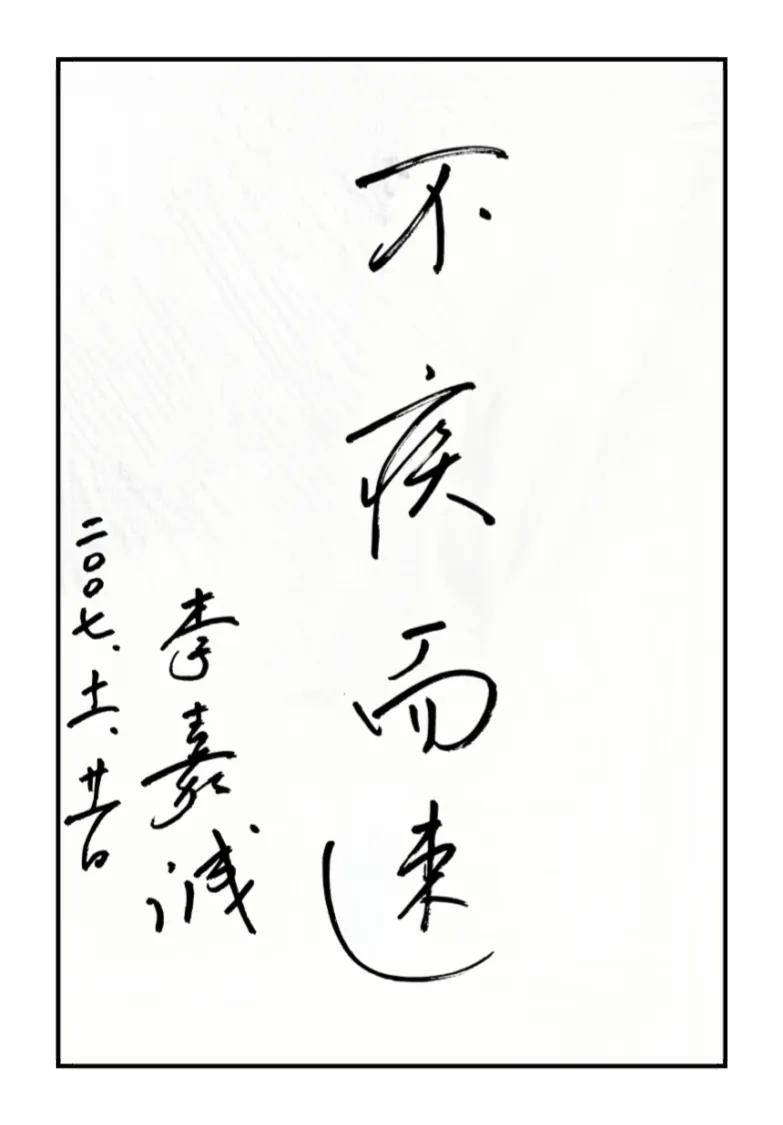 不疾而速
李嘉诚
二〇〇七、十一、廿一日